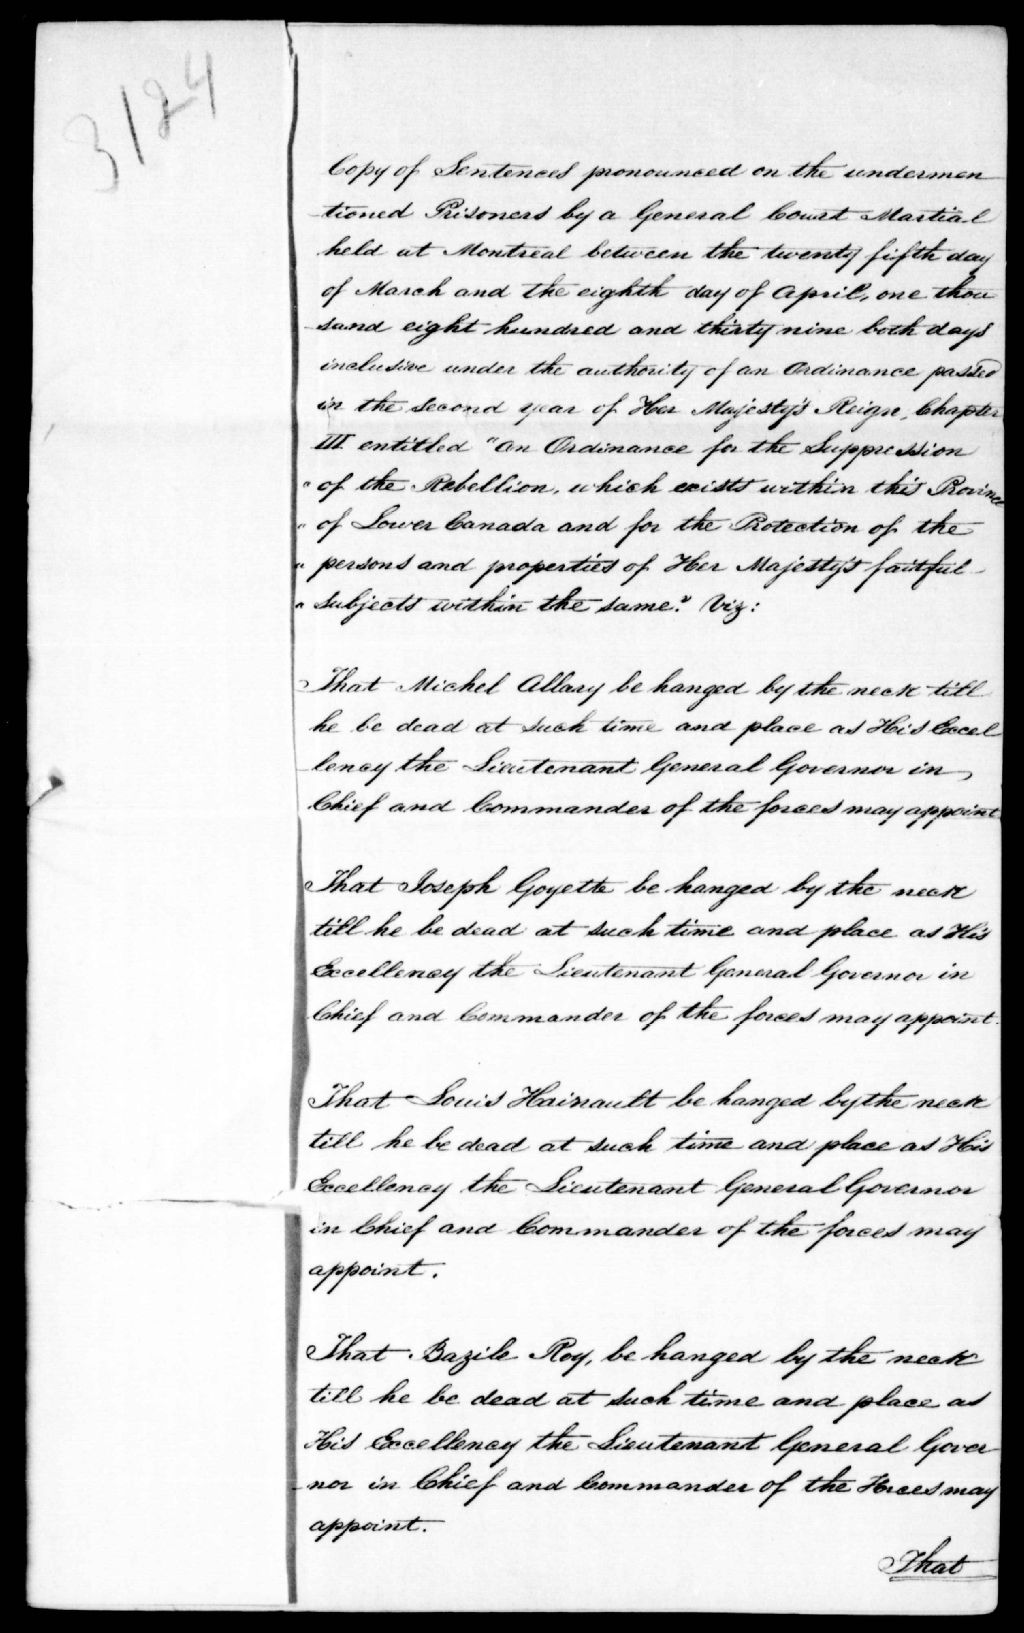 3124
Copy of Sentences pronounced on the undermen
-tioned Prisoners by a General Court Martial
held at Montreal between the twenty fifth day
of March and the eighth day of April, one thou
-sand eight hundred and thirty nine both days
inclusive under the authority of an Ordinance passed
in the second year of Her Majesty's Reign, Chapter
III entitled "An Ordinance for the Suppression
" of the Rebellion, which exists within this Province
" of Lower Canada and for the Protection of the
" persons and properties of Her Majesty's faitful
" Subjects within the same." Viz:
That Michel Allary be hanged by the neck till
he be dead at such time and place as His Excel
-lency the Lieutenant General Governor in
Chief and Commander of the forces may appoint
That Joseph Goyette be hanged by the neck
till he be dead at such time and place as His
Excellency the Lieutenant General Governor in
Chief and Commander of the forces may appoint.
That Louis Hainault be hanged by the neck
till he be dead at such time and place as His
Excellency the Lieutenant General Governor
in Chief and Commander of the forces may
appoint.
That Bazile Roy, be hanged by the neck
till he be dead at such time and place as
His Excellency the Lieutenant General Gover
-nor in Chief and Commander of the Forces may
appoint.
That